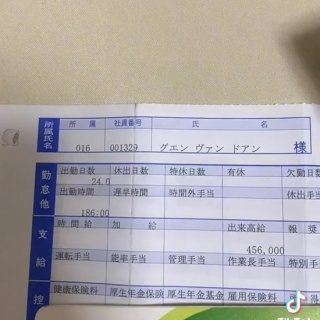 所属氏名
所 属 社員番号 氏 名
016 001329 グエン ヴァン ドアン 様
勤怠他
出勤日数 休出日数 特休日数 有休 欠勤日数
24.0
出勤時間 遅早時間 時間外手当 休出手
186:00
支給
時間給 加給 出来高給 報奨
456,000
運転手当 能率手当 管理手当 作業長手当 特別手
控
健康保険料 厚生年金保険 厚生年金基金 雇用保険料
TikTok